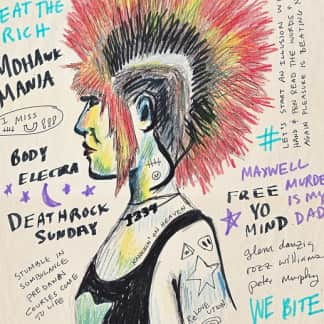 EAT THE
RICH
MOHAWK
MANIA
I MISS
BODY
ELECTRA
DEATHROCK
SUNDAY
STUMBLE IN
SOMBULANCE
PRE DAWN
COURSES COME
TO LIFE
1334
KNOCKIN' ON HEAVEN
REVOLUTION
#
LET'S START AN ILLUSION W
HAND & PEN READ THE WORDS &
AGAIN PLEASURE IS BEATING
MAXWELL
MURDE
IS MY
DAD
FREE
YO
MIND
glenn danzig
rozz williams
peter murphy
WE BITE